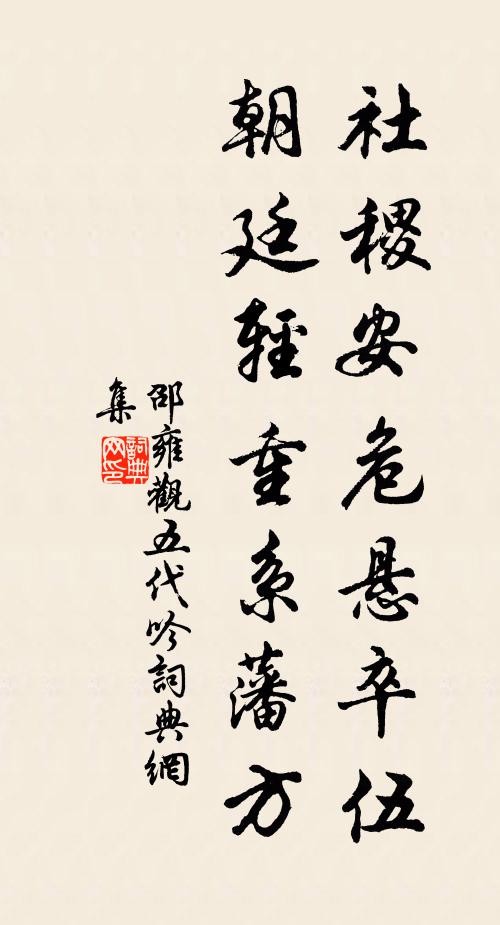 社稷安危悬卒伍
朝廷輕重系藩方
邵雍觀五代吟詞典網
集
詞典網印